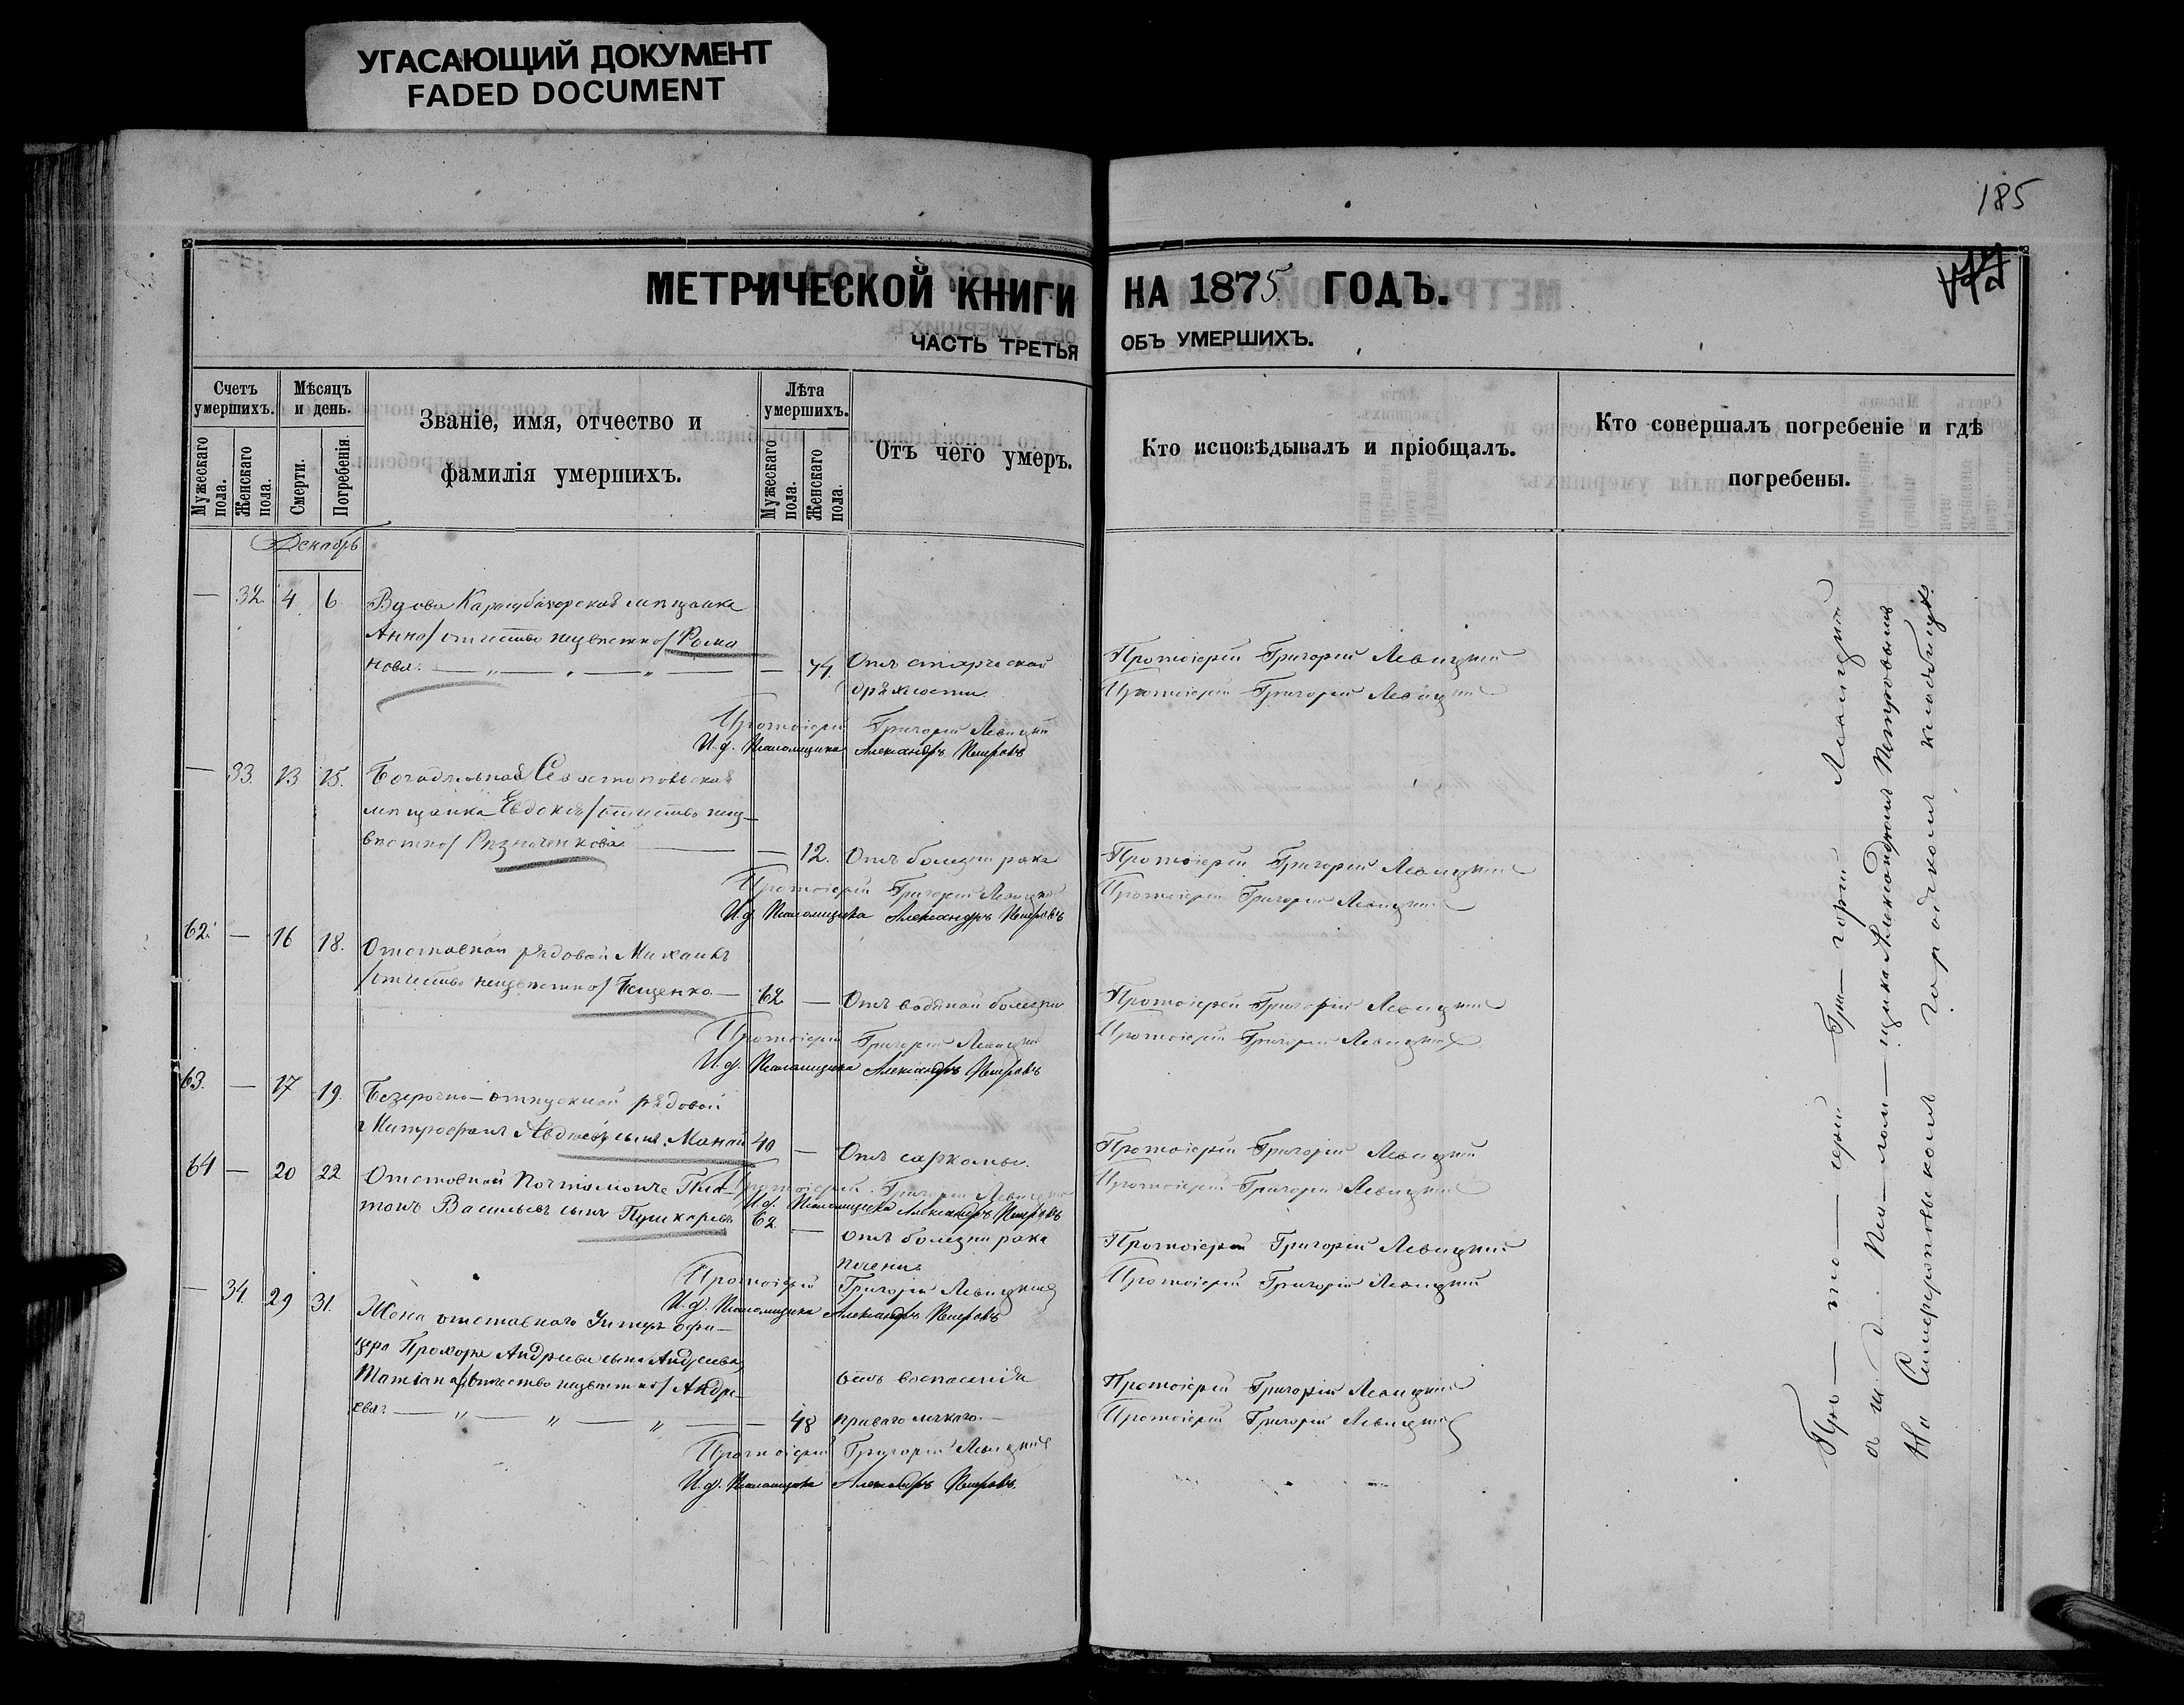 УГАСАЮЩИЙ ДОКУМЕНТ
FADED DOCUMENT
185
МЕТРИЧЕСКОЙ КНИГИ НА 1875 ГОДЪ.
ЧАСТЬ ТРЕТЬЯ ОБЪ УМЕРШИХЪ.
Счетъ умершихъ.
Мужескаго пола.
Женскаго пола.
Мѣсяцъ и день.
Смерти.
Погребенія.
Званіе, имя, отчество и
фамилія умершихъ.
Лѣта умершихъ.
Мужескаго пола.
Женскаго пола.
Отъ чего умеръ.
Кто исповѣдывалъ и пріобщалъ.
Кто совершалъ погребеніе и гдѣ
погребены.
Декабрь
— 32. 4 6 Вдова Карасубазарская мѣщанка
Анна /отчество неизвѣстно/ Рома
нова. — 74. Отъ старческой Протоіерей Григорій Левицкій
дряхлости. Протоіерей Григорій Левицкій
Протоіерей Григорій Левицкій
И. д. Псаломщика Александръ Петровъ
— 33. 13 15. Богадѣльная Севастопольская
мѣщанка Евдокія /отчество неиз-
вѣстно/ — 12. Отъ болезни рака Протоіерей Григорій Левицкій
Протоіерей Григорій Левицкій Протоіерей Григорій Левицкій
И. д. Псаломщика Александръ Петровъ
62. — 16 18. Отставной рядовой Михаилъ
/отчество неизвѣстно/ — 62 — Отъ водяной болезни Протоіерей Григорій Левицкій
Протоіерей Григорій Левицкій Протоіерей Григорій Левицкій
И. д. Псаломщика Александръ Петровъ
63. — 17 19. Безсрочно-отпускной рядовой
Митрофанъ сынъ — Отъ саркомы. Протоіерей Григорій Левицкій
64 — 20 22 Отставной Пла- Протоіерей Григорій Левицкій Протоіерей Григорій Левицкій
И. д. Псаломщика Александръ Петровъ
тонъ Васильевъ сынъ Пушкаревъ 62. — отъ болезни рака Протоіерей Григорій Левицкій
печени. Протоіерей Григорій Левицкій
Протоіерей Григорій Левицкій
И. д. Псаломщика Александръ Петровъ
— 34. 29 31. Жена отставного Унтеръ-офи-
цера Прохора Андреева сына Андреева
/отчество неизвѣстно/ Андре- отъ воспаленія Протоіерей Григорій Левицкій
ева. — 48 праваго легкаго. Протоіерей Григорій Левицкій
Протоіерей Григорій Левицкій
И. д. Псаломщика Александръ Петровъ
Про — то — іерей Гри — горій Левицкій
с и. д. Пса — лом — щика Александромъ Петровымъ
На Симферопольскомъ городскомъ кладбищѣ.